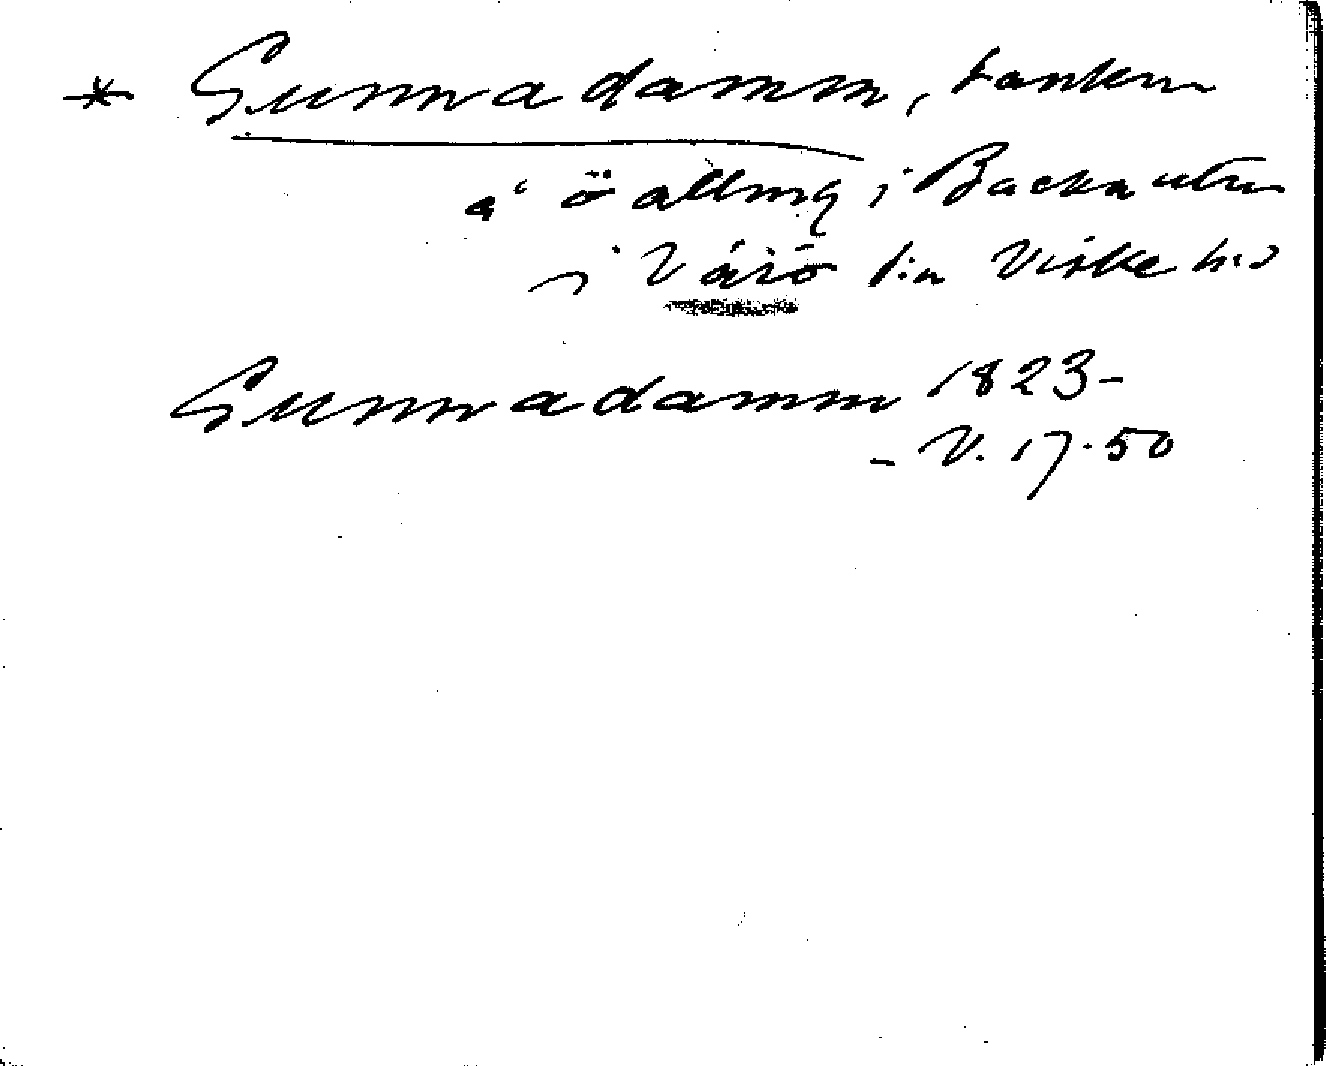 * Gunnadamm, tankar
å ö allmg i Backa utm
i Värö sn Viske hd
Gunnadamm 1823-
- V. 17.50